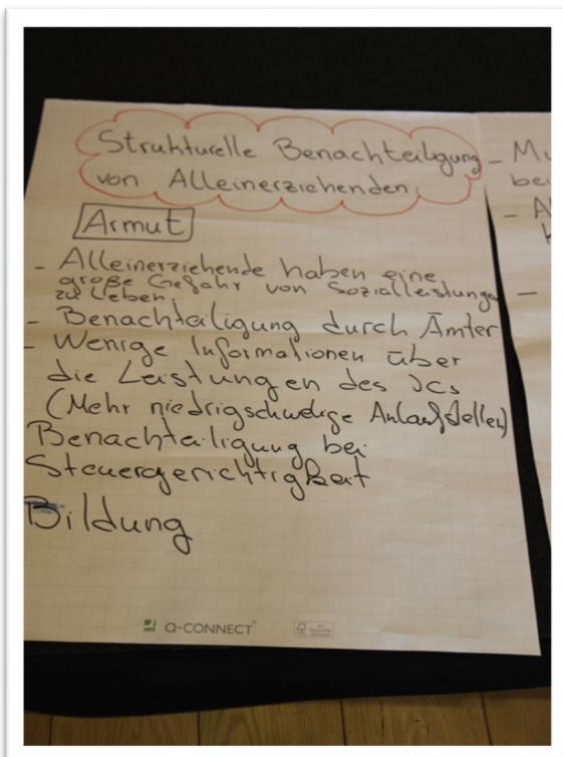 Strukturelle Benachteiligung
von Alleinerziehenden.
Armut
- Alleinerziehende haben eine
große Gefahr von Sozialleistungen
zu Leben.
- Benachteiligung durch Ämter
- Wenige Informationen über
die Leistungen des JCs
(Mehr niedrigschwelige Anlaufstellen)
Benachteiligung bei
Steuergerichtigkeit
Bildung
Q-CONNECT
- Mu
bei
- A
-